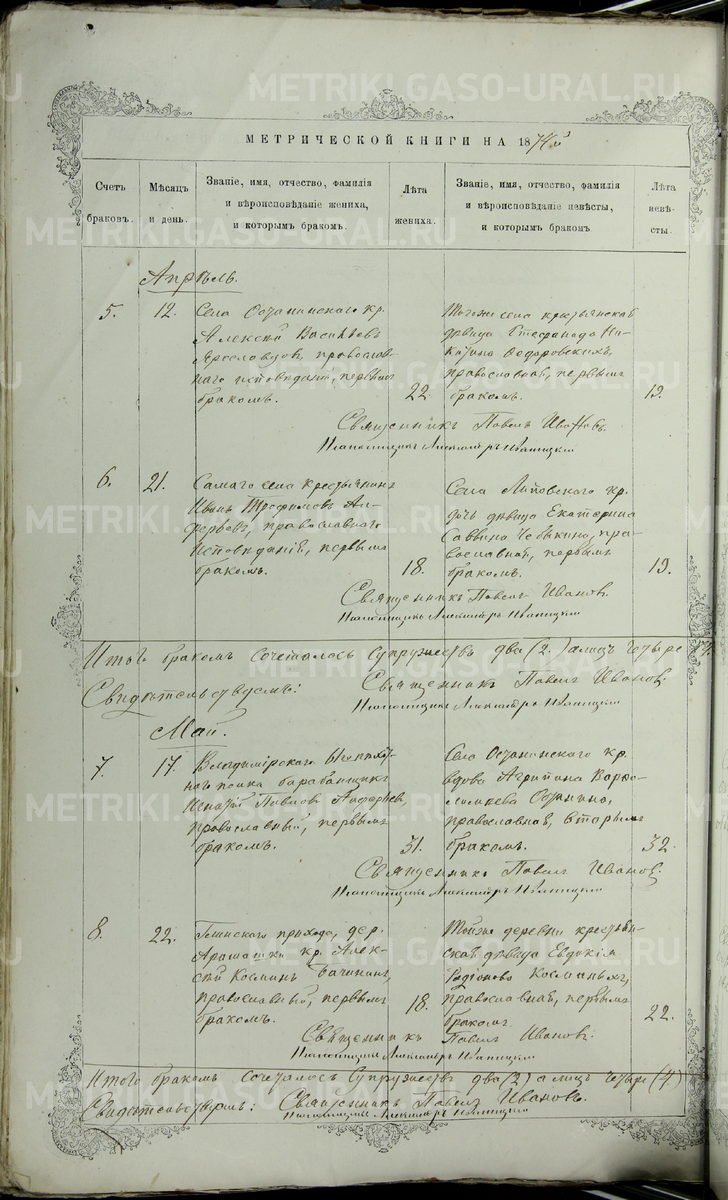 METRIKI.GASO-URAL.RU
МЕТРИЧЕСКОЙ КНИГИ НА 1874й
Счетъ
браковъ.
Мѣсяцъ
и день.
Званіе, имя, отчество, фамилія
и вѣроисповѣданіе жениха,
и которымъ бракомъ.
Лѣта
жениха.
Званіе, имя, отчество, фамилія
и вѣроисповѣданіе невѣсты,
и которымъ бракомъ
Лѣта
невѣ-
сты.
Апрѣль.
5.
12.
Села Останинскаго кр.
Алексѣй Васильевъ
Ярославцовъ, православ-
наго исповѣданія, первымъ
бракомъ.
22
Тогоже села крестьянская
дѣвица Стефанида Ни-
китина православная, первымъ
бракомъ.
19.
Священникъ Павелъ Ивановъ.
Александръ
6.
21.
Самаго села крестьянинъ
Иванъ Трофимовъ Ал-
ферьевъ, православнаго
исповѣданія, первымъ
бракомъ.
18.
Села Липовскаго кр.
дочь дѣвица Екатерина
Саввина пра-
вославная, первымъ
бракомъ.
19.
Священникъ Павелъ Ивановъ.
Александръ
Итого бракомъ сочеталось супружествъ два (2.) а лицъ четыре
Свидѣтельствуемъ:
Священникъ Павелъ Ивановъ.
Александръ
Май.
7.
17.
Владимірскаго пѣхот-
наго полка барабанщикъ
Игнатій Павловъ Алферьевъ
православный, первымъ
бракомъ.
31.
Села Останинскаго кр.
вдова Агрипина Варфо-
ломѣева Останина,
православная, вторымъ
бракомъ.
32.
Священникъ Павелъ Ивановъ.
Александръ
8.
22.
Глинскаго прихода, дер.
Арамашки кр. Алек-
сѣй Косминъ Бачининъ,
православный, первымъ
бракомъ.
18.
Тойже деревни крестьян-
ская дѣвица Евдокія
Родіонова Косминыхъ,
православная, первымъ
бракомъ.
22.
Священникъ Павелъ Ивановъ.
Александръ
Итого бракомъ сочеталось супружествъ два (2) а лицъ четыре (4)
Свидѣтельствуемъ: Священникъ Павелъ Ивановъ.
Александръ